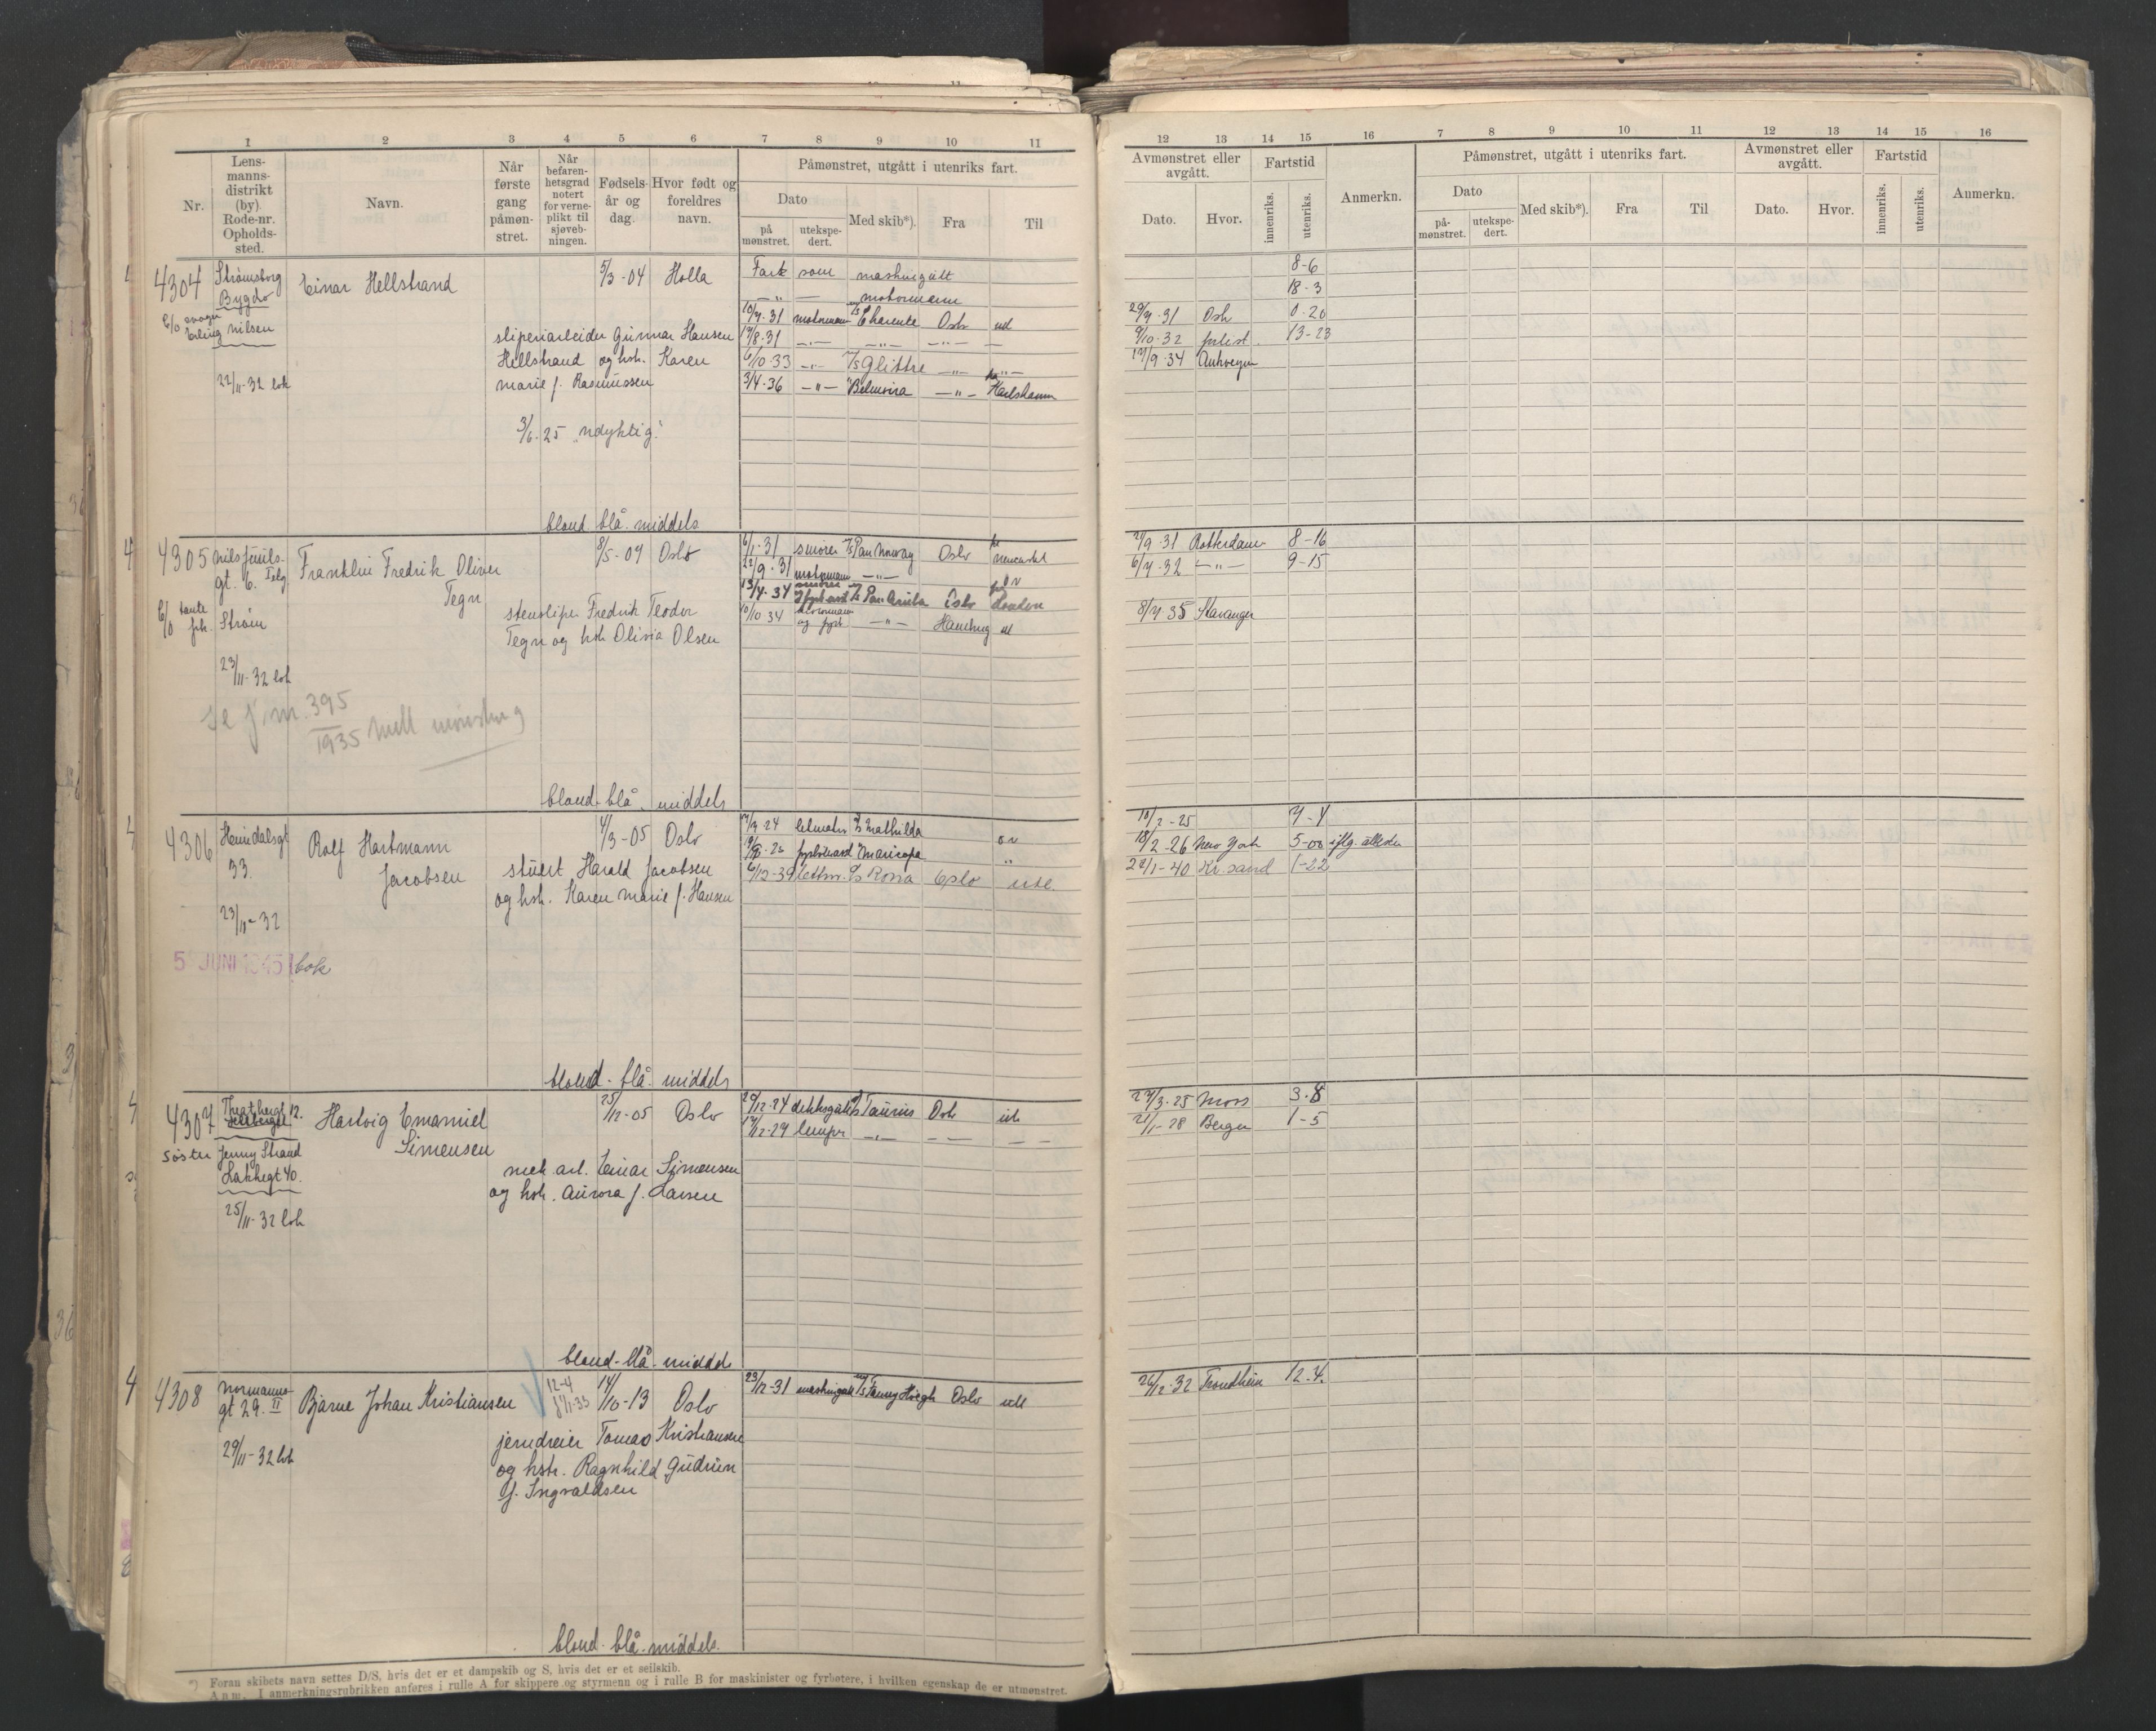 1 2 3 4 5 6 7 8 9 10 11
Nr.
Lens-
manns-
distrikt
(by).
Rode-nr.
Opholds-
sted.
Navn.
Når
første
gang
påmøn-
stret.
Når
befaren-
hetsgrad
notert
for verne-
plikt til
sjøveb-
ningen.
Fødsels-
år og
dag.
Hvor født og
foreldres
navn.
Påmønstret, utgått i utenriks fart.
Dato
på
mønstret.
utekspe-
dert.
Med skib*).
Fra
Til
4304 Strømsborg Einar Hellstrand 5/3-04 Holla
Bygdø
c/o
Erling Nilsen
22/11-32 bok
sliperiarbeider Gunnar Hansen
Hellstrand og hstr. Karen
Marie f. Rasmussen
3/6-25 "Udyktig".
Fart som maskingutt
— " — motormann
10/7-31 motormann M/S Charente Oslo utl
17/8-31 — " — — " — — " — —
6/10-33 — " — M/S Glittre — " — — " —
3/4-36 — " — " Belmoira — " — Karlshamn
blond. blå. middels
4305 Nils Juuls- Franklin Fredrik Oliver 8/5-09 Oslo
gt. 6. Tegn
c/o tante
frk. Strøm
stensliper Fredrik Teodor
Tegn og hstr Olivia Olsen
23/11-32 bok
Se j nr. 395
1935
6/1-31 smører M/S Pan Norway Oslo
22/9-31 motormann — " —
13/4-34 M/S Pan Aruba Oslo London
10/10-34 motormann — " — Hamburg utl
og fyrb
blond. blå. middels
4306 Heimdalsgt Rolf Hartmann 4/3-05 Oslo
33. Jacobsen
stuert Harald Jacobsen
og hstr. Karen Marie f. Hansen
23/11-32
5 JUNI 1945 bok
Mathilda
Maricopa
6/12-39 lettm. D/S Rosra Oslo utl.
blond. blå. middels
4307 12. Hartvig Emanuel 25/12-05 Oslo
Simensen
Søster Jenny Strand
Lakkegt 40.
mek arb. Einar Simensen
og hstr. Aurora f. Larsen
25/11-32 bok
29/12-24 dekksgutt D/S Taurus Oslo utl
17/12-27 lemper — " — — — — —
blond. blå. middels
4308 Normanns- Bjarne Johan Kristiansen 12-4 14/10-13 Oslo
gt 29. II
29/11-32 bok
jerndreier Tomas Kristiansen
og hstr. Ragnhild Gudrun
f. Ingvaldsen
23/12-31 maskingutt M/S Fanny Høegh Oslo utl
blond. blå. middels.
*) Foran skibets navn settes D/S, hvis det er et dampskib og S, hvis det er et seilskib.
Anm. I anmerkningsrubrikken anføres i rulle A for skippere og styrmenn og i rulle B for maskinister og fyrbøtere, i hvilken egenskap de er utmønstret.
12 13 14 15 16 7 8 9 10 11 12 13 14 15 16
Avmønstret eller
avgått.
Dato.
Hvor.
Fartstid
innenriks.
utenriks.
Anmerkn.
Påmønstret, utgått i utenriks fart.
Dato
på-
mønstret.
utekspe-
dert.
Med skib*).
Fra
Til
Avmønstret eller
avgått.
Dato.
Hvor.
Fartstid
innenriks.
utenriks.
Anmerkn.
8-6
18-3
29/7-31 Oslo 0-20
9/10-32 13-23
17/9-34 Antwerpen
2/9-31 Rotterdam 8-16
6/7-32 — " — 9-15
8/7-35 Stavanger
10/2-25 7-4
18/2-26 New York 5-00
27/1-40 Kr.sand 1-22
27/3-25 Moss 3-8
21/1-28 Bergen 1-5
26/12-32 Trondheim 12-4.